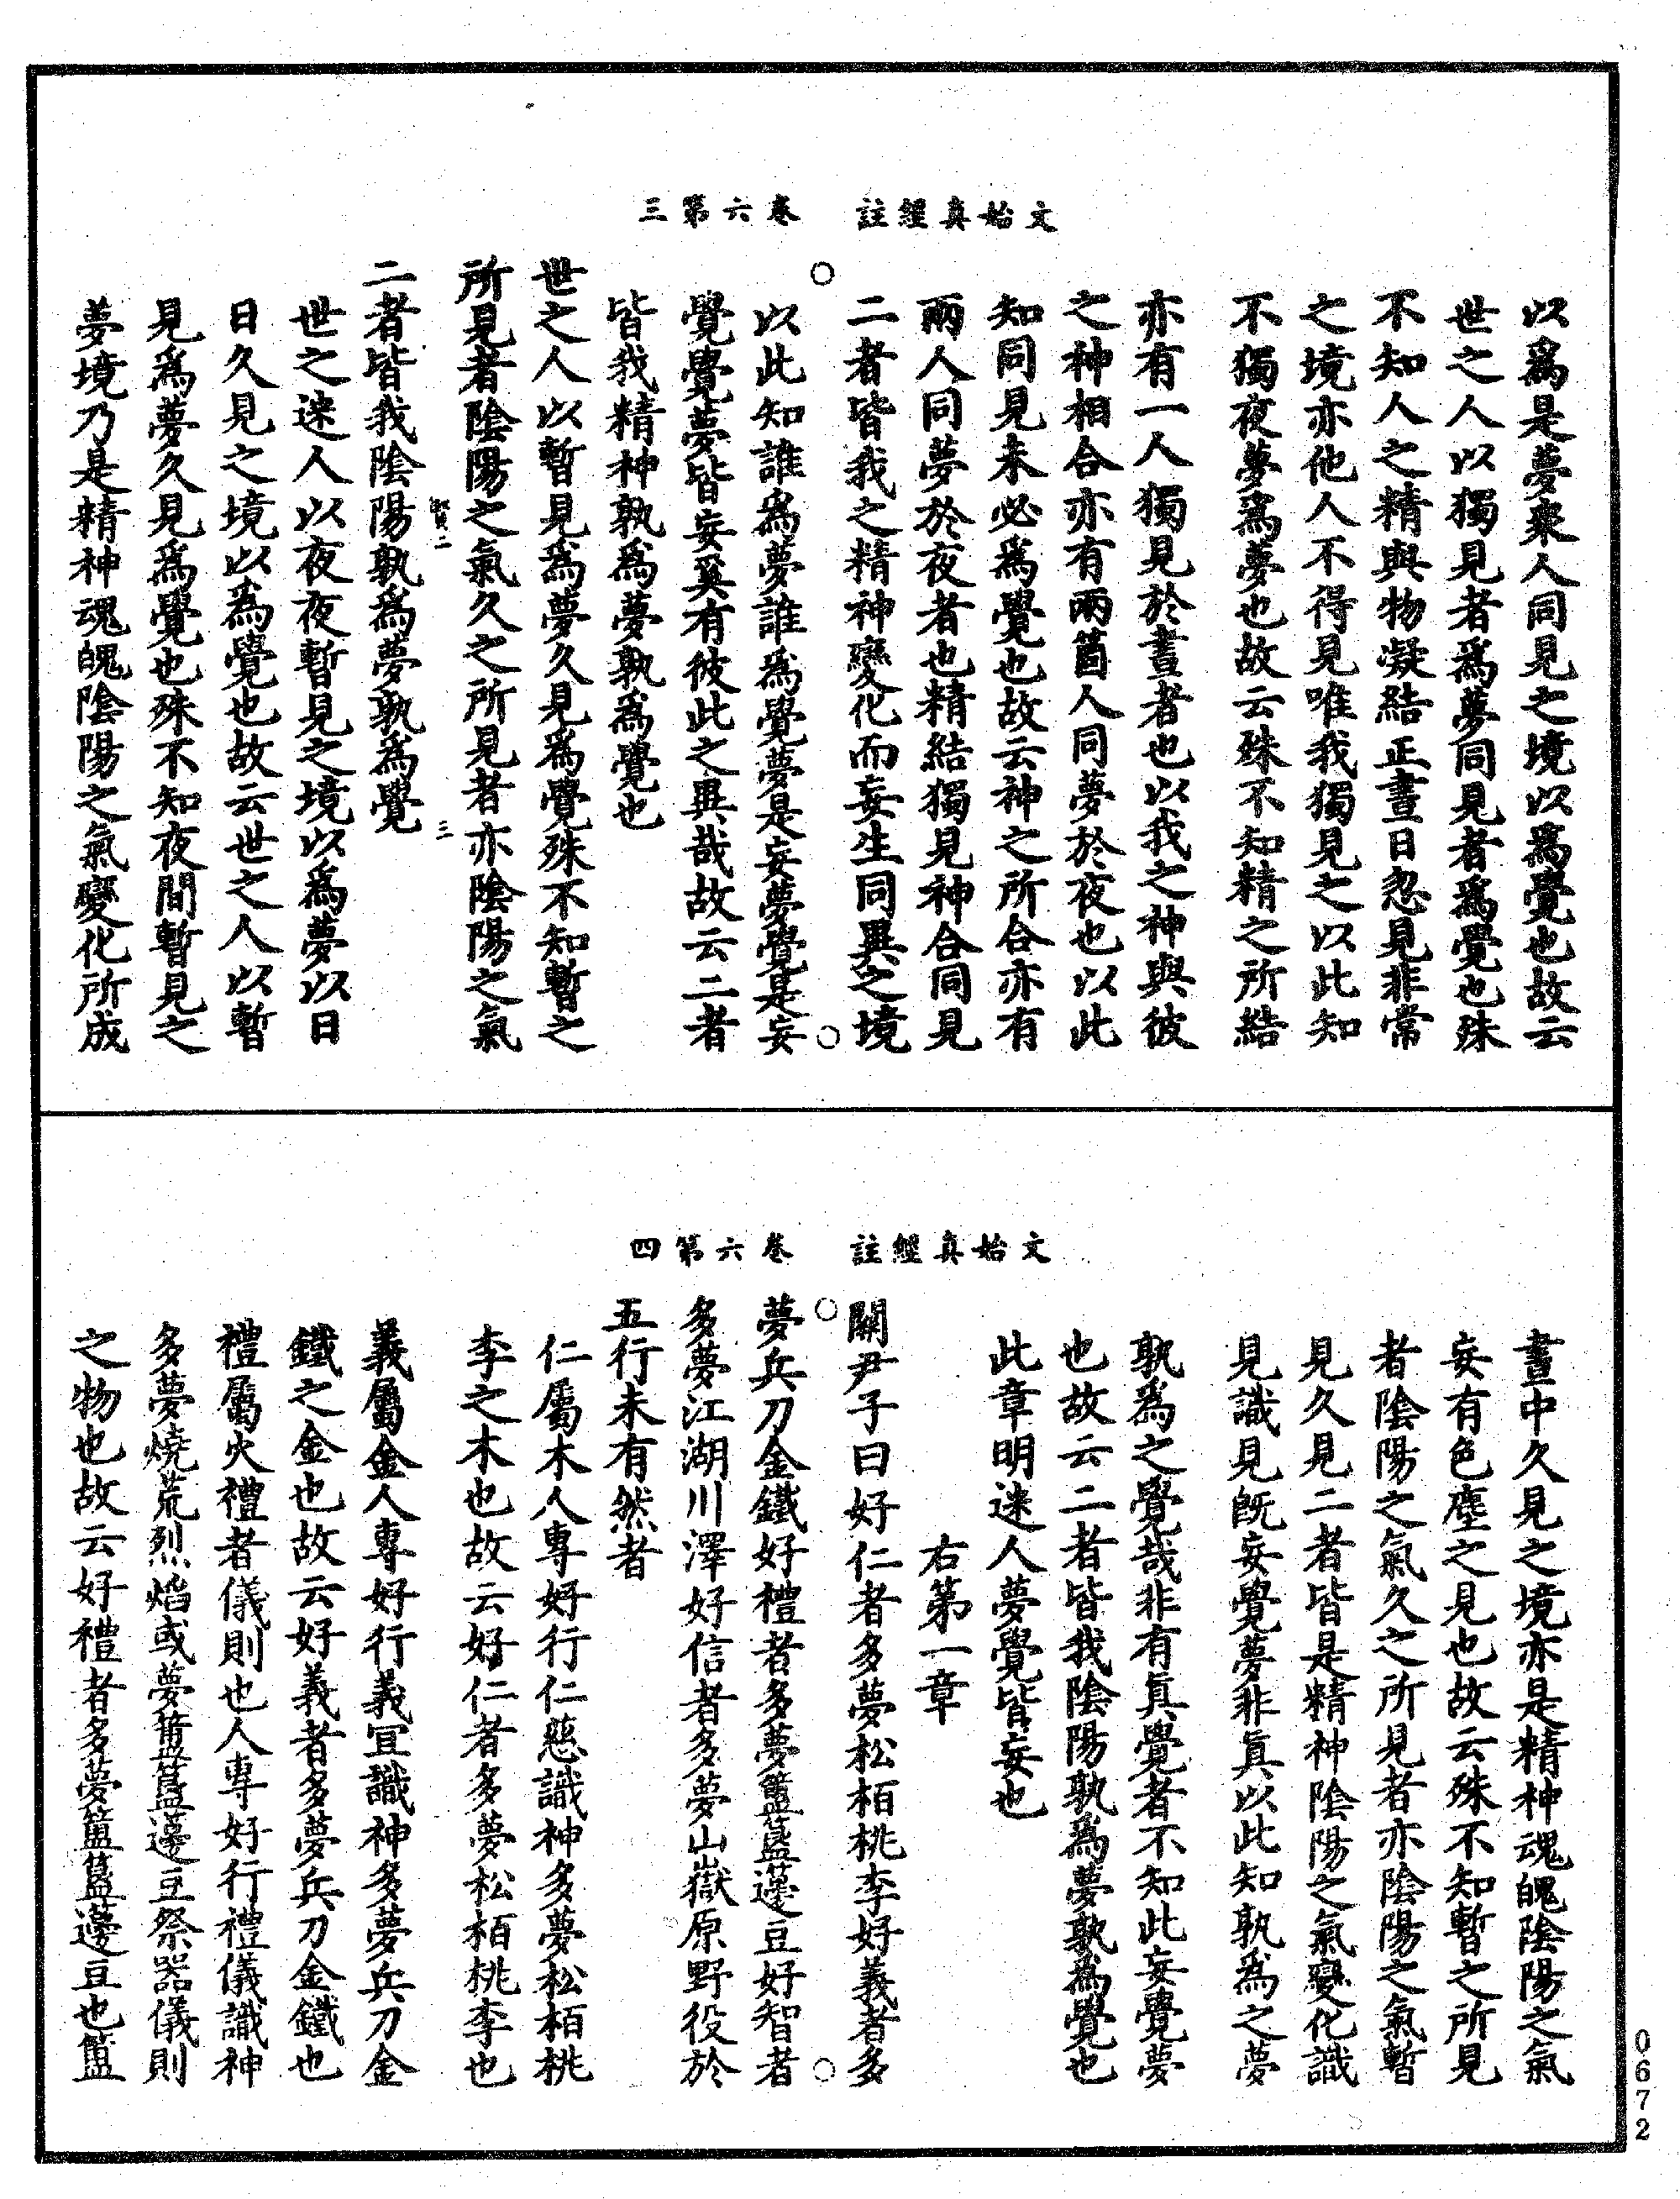 文始真經註　卷六第三
以爲是夢衆人同見之境以爲覺也故云
世之人以獨見者爲夢同見者爲覺也殊
不知人之精與物凝結正晝日忽見非常
之境亦他人不得見唯我獨見之以此知
不獨夜夢爲夢也故云殊不知精之所結
亦有一人獨見於晝者也以我之神與彼
之神相合亦有兩箇人同夢於夜也以此
知同見未必爲覺也故云神之所合亦有
兩人同夢於夜者也精結獨見神合同見
二者皆我之精神變化而妄生同異之境
以此知誰爲夢誰爲覺夢是妄夢覺是妄
覺覺夢皆妄奚有彼此之異哉故云二者
皆我精神孰爲夢孰爲覺也
世之人以暫見爲夢久見爲覺殊不知暫之
所見者陰陽之氣久之所見者亦陰陽之氣
二者皆我陰陽孰爲夢孰爲覺
世之迷人以夜夜暫見之境以爲夢以日
日久見之境以爲覺也故云世之人以暫
見爲夢久見爲覺也殊不知夜間暫見之
夢境乃是精神魂魄陰陽之氣變化所成
文始真經註　卷六第四
晝中久見之境亦是精神魂魄陰陽之氣
妄有色塵之見也故云殊不知暫之所見
者陰陽之氣久之所見者亦陰陽之氣暫
見久見二者皆是精神陰陽之氣變化識
見識見旣妄覺夢非眞以此知孰爲之夢
孰爲之覺哉非有眞覺者不知此妄覺夢
也故云二者皆我陰陽孰爲夢孰爲覺也
此章明迷人夢覺皆妄也
右第一章
關尹子曰好仁者多夢松栢桃李好義者多
夢兵刀金鐵好禮者多夢簠簋籩豆好智者
多夢江湖川澤好信者多夢山嶽原野役於
五行未有然者
仁屬木人專好行仁慈識神多夢松栢桃
李之木也故云好仁者多夢松栢桃李也
義屬金人專好行義宜識神多夢兵刀金
鐵之金也故云好義者多夢兵刀金鐵也
禮屬火禮者儀則也人專好行禮儀識神
多夢燒荒烈焰或夢簠簋籩豆祭器儀則
之物也故云好禮者多夢簠簋籩豆也簠
0672